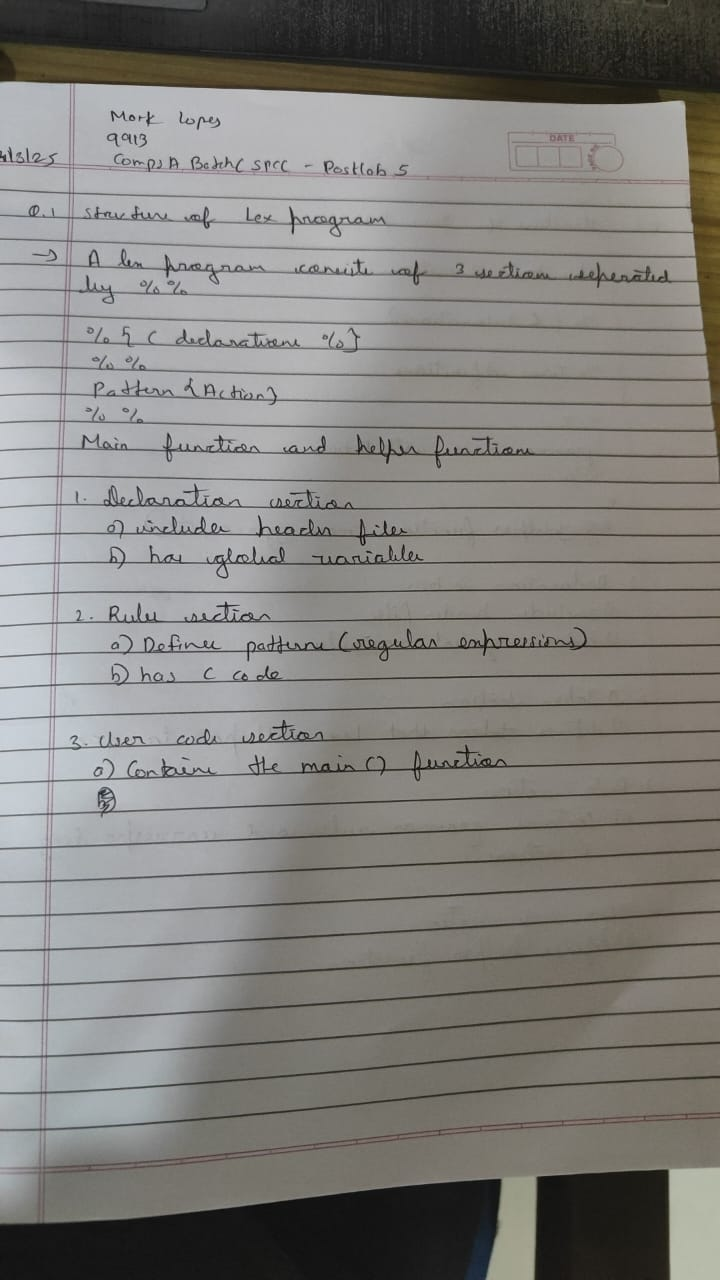 Mark Lopes
9913
4/3/25 Comps A Batch C SPCC - Postlab 5
DATE
Q.1 Structure of Lex program
→ A lex program consists of 3 sections seperated
by %%
%{ C declarations %}
%%
Pattern {Action}
%%
Main function and helper functions
1. Declaration section
a) includes header files
b) has global variables
2. Rules section
a) Defines patterns (regular expressions)
b) has C code
3. User code section
a) Contains the main() function